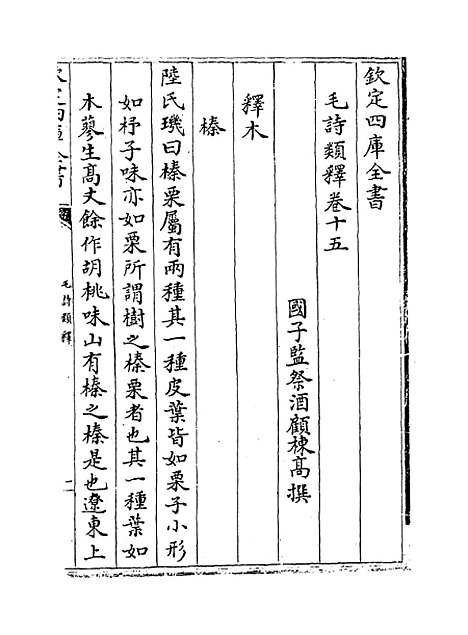 欽定四庫全書
毛詩類釋卷十五
國子監祭酒顧棟高撰
釋木
榛
陸氏璣曰榛栗屬有兩種其一種皮葉皆如栗子小形
如杼子味亦如栗所謂樹之榛栗者也其一種葉如
木蓼生髙丈餘作胡桃味山有榛之榛是也遼東上
欽定四庫全書
毛詩類釋